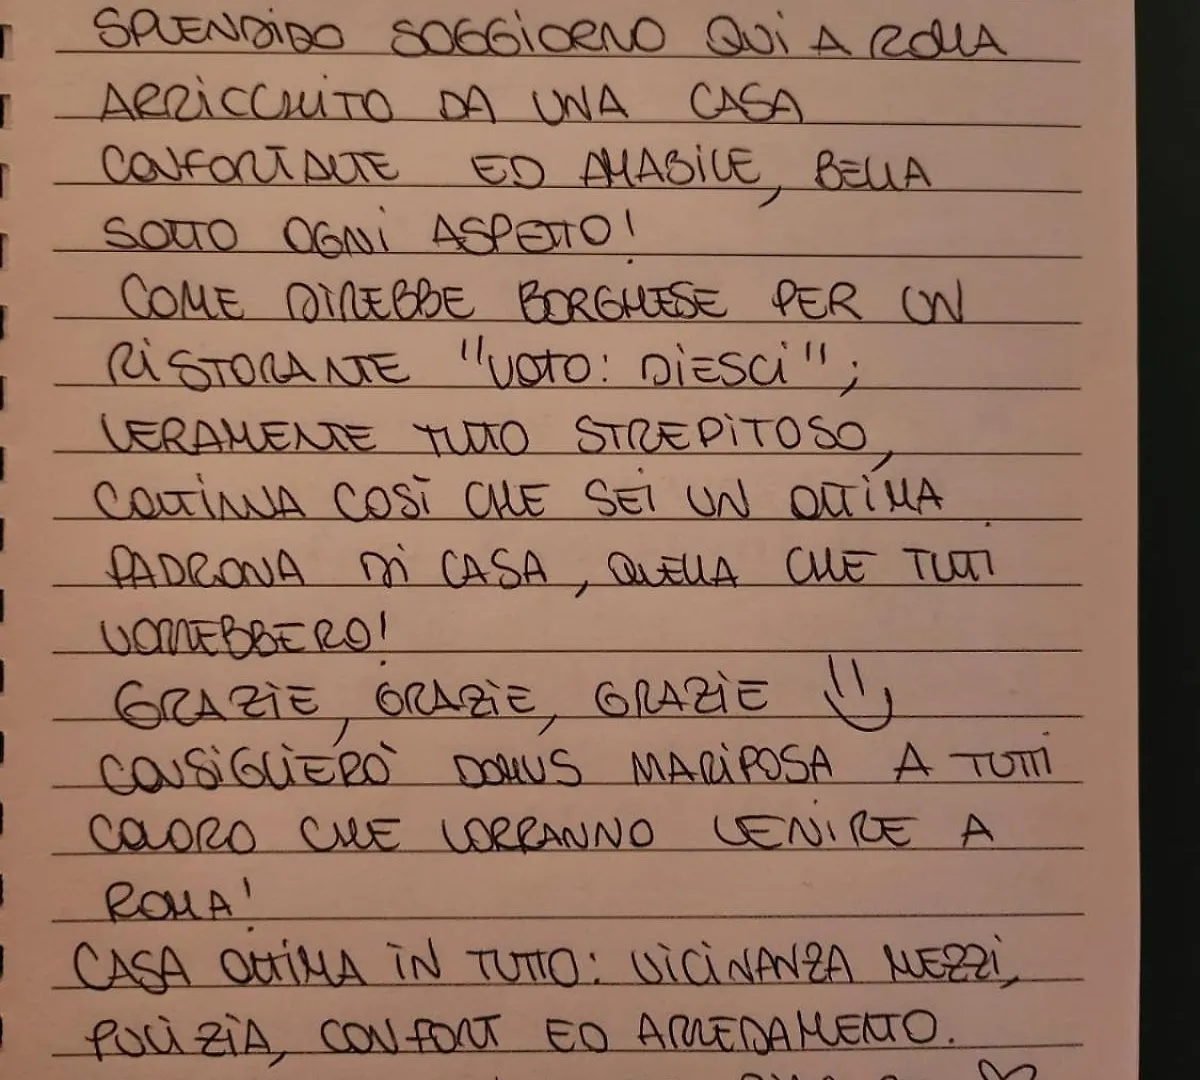 SPLENDIDO SOGGIORNO QUI A ROMA
ARRICCHITO DA UNA CASA
CONFORTANTE ED AMABILE, BELLA
SOTTO OGNI ASPETTO!
COME DIREBBE BORGHESE PER UN
RISTORANTE "VOTO: DIESCI";
VERAMENTE TUTTO STREPITOSO,
CONTINUA COSÌ CHE SEI UN OTTIMA
PADRONA DI CASA, QUELLA CHE TUTTI
VORREBBERO!
GRAZIE, GRAZIE, GRAZIE
CONSIGLIERÒ DOMUS MARIPOSA A TUTTI
COLORO CHE VORRANNO VENIRE A
ROMA!
CASA OTTIMA IN TUTTO: VICINANZA MEZZI,
PULIZIA, CONFORT ED ARREDAMENTO.